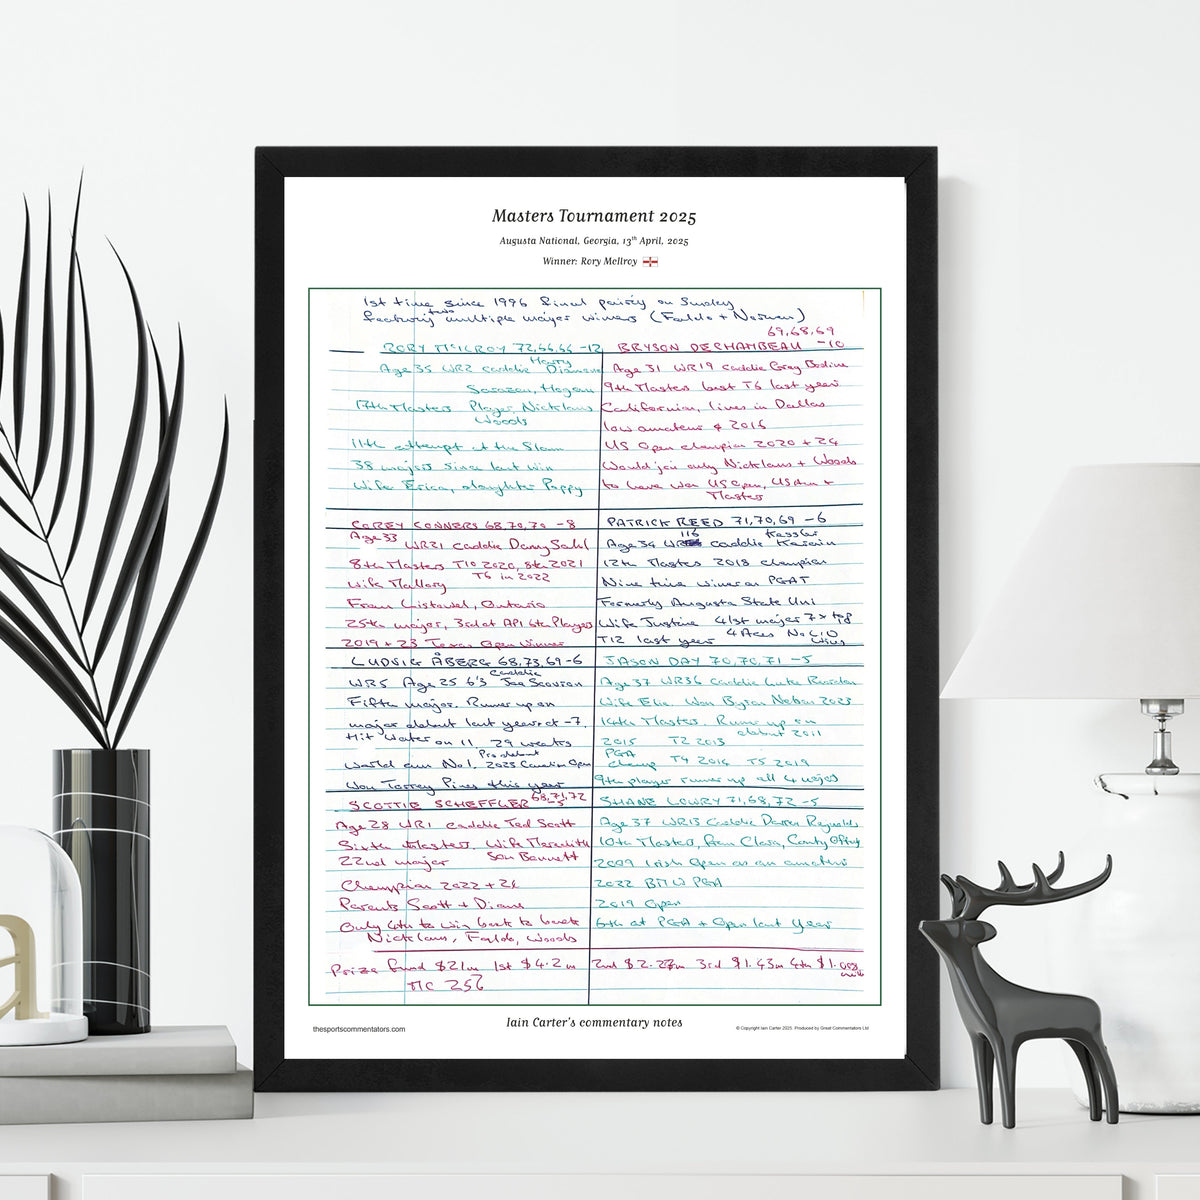 Masters Tournament 2025
Augusta National, Georgia, 13th April, 2025
Winner: Rory McIlroy
1st time since 1996 final pairing on Sunday
featuring two multiple major winners (Faldo + Norman)
RORY McILROY 72,66,66 -12
Age 35 WR2 caddie Harry Diamond
Sarazen, Hogan
17th Masters Player, Nicklaus
Woods
11th attempt at the Slam
38 majors since last win
Wife Erica, daughter Poppy
69,68,69
BRYSON DECHAMBEAU -10
Age 31 WR19 caddie Greg Bodine
9th Masters best T6 last year
Californian, lives in Dallas
low amateur 2016
US Open champion 2020 + 24
Would join only Nicklaus + Woods
to have won US Open, US Am +
Masters
COREY CONNERS 68,70,70 -8
Age 33
WR21 caddie Danny Sahl
8th Masters T10 2020, 8th 2021
Wife Mallory T6 in 2022
From Listowel, Ontario
25th major, 3rd at API 6th Players
2019 + 23 Texas Open Winner
PATRICK REED 71,70,69 -6
Age 34 WR 116 caddie Kessler Karain
12th Masters 2018 champion
Nine time winner on PGAT
Formerly Augusta State Uni
Wife Justine 41st major 7x top 10
T12 last year 4 Aces No LIV
wins
LUDVIG ÅBERG 68,73,69 -6
WR5 Age 25 6'3 caddie Joe Scovron
Fifth major. Runner up on
major debut last year at -7.
Hit Water on 11 29 weeks
World am No1. Pro debut 2023 Canadian Open
Won Torrey Pines this year
JASON DAY 70,70,71 -5
Age 37 WR36 Caddie Luke Reardon
Wife Ellie. Won Byron Nelson 2023
14th Masters. Runner up on
debut 2011
2015 T2 2013
PGA
Champ T4 2016 T5 2019
9th player runner up all 4 majors
SCOTTIE SCHEFFLER 68,71,72 -5
Age 28 WR1 caddie Ted Scott
Sixth Masters, Wife Meredith
22nd major Son Bennett
Champion 2022 + 24
Parents Scott + Diane
Only 4th to win back to back
Nicklaus, Faldo, Woods
SHANE LOWRY 71,68,72 -5
Age 37 WR13 Caddie Darren Reynolds
10th Masters, from Clara, County Offaly
2009 Irish Open as an amateur
2022 BMW PGA
2019 Open
6th at PGA + Open last year
Prize fund $21m 1st $4.2m 2nd $2.27m 3rd $1.43m 4th $1.008
MC 256
thesportscommentators.com
Iain Carter's commentary notes
© Copyright Iain Carter 2025. Produced by Great Commentators Ltd